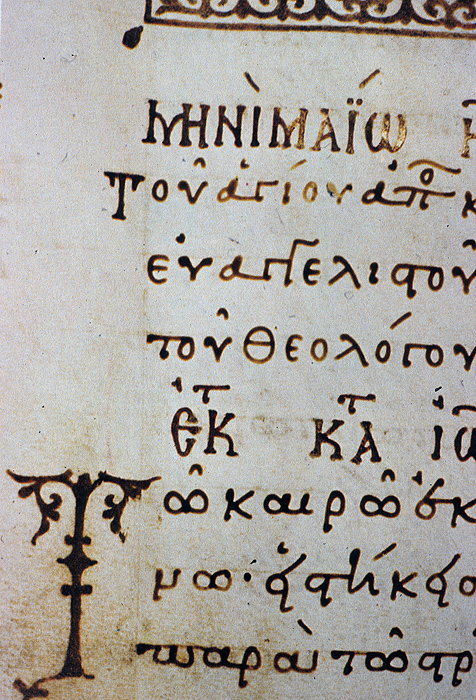 ΜΗΝῚ ΜΑΪ́Ω
Τοῦ ἁγίου ἀπο κ
εὐαγγελιστοῦ
τοῦ Θεολόγου
ἘΚ Τ ΚΑΤ ἸΩ
Τῶ καιρῶ ἐκ
μω· εἱστήκεισ
παρὰ τῶ στρ